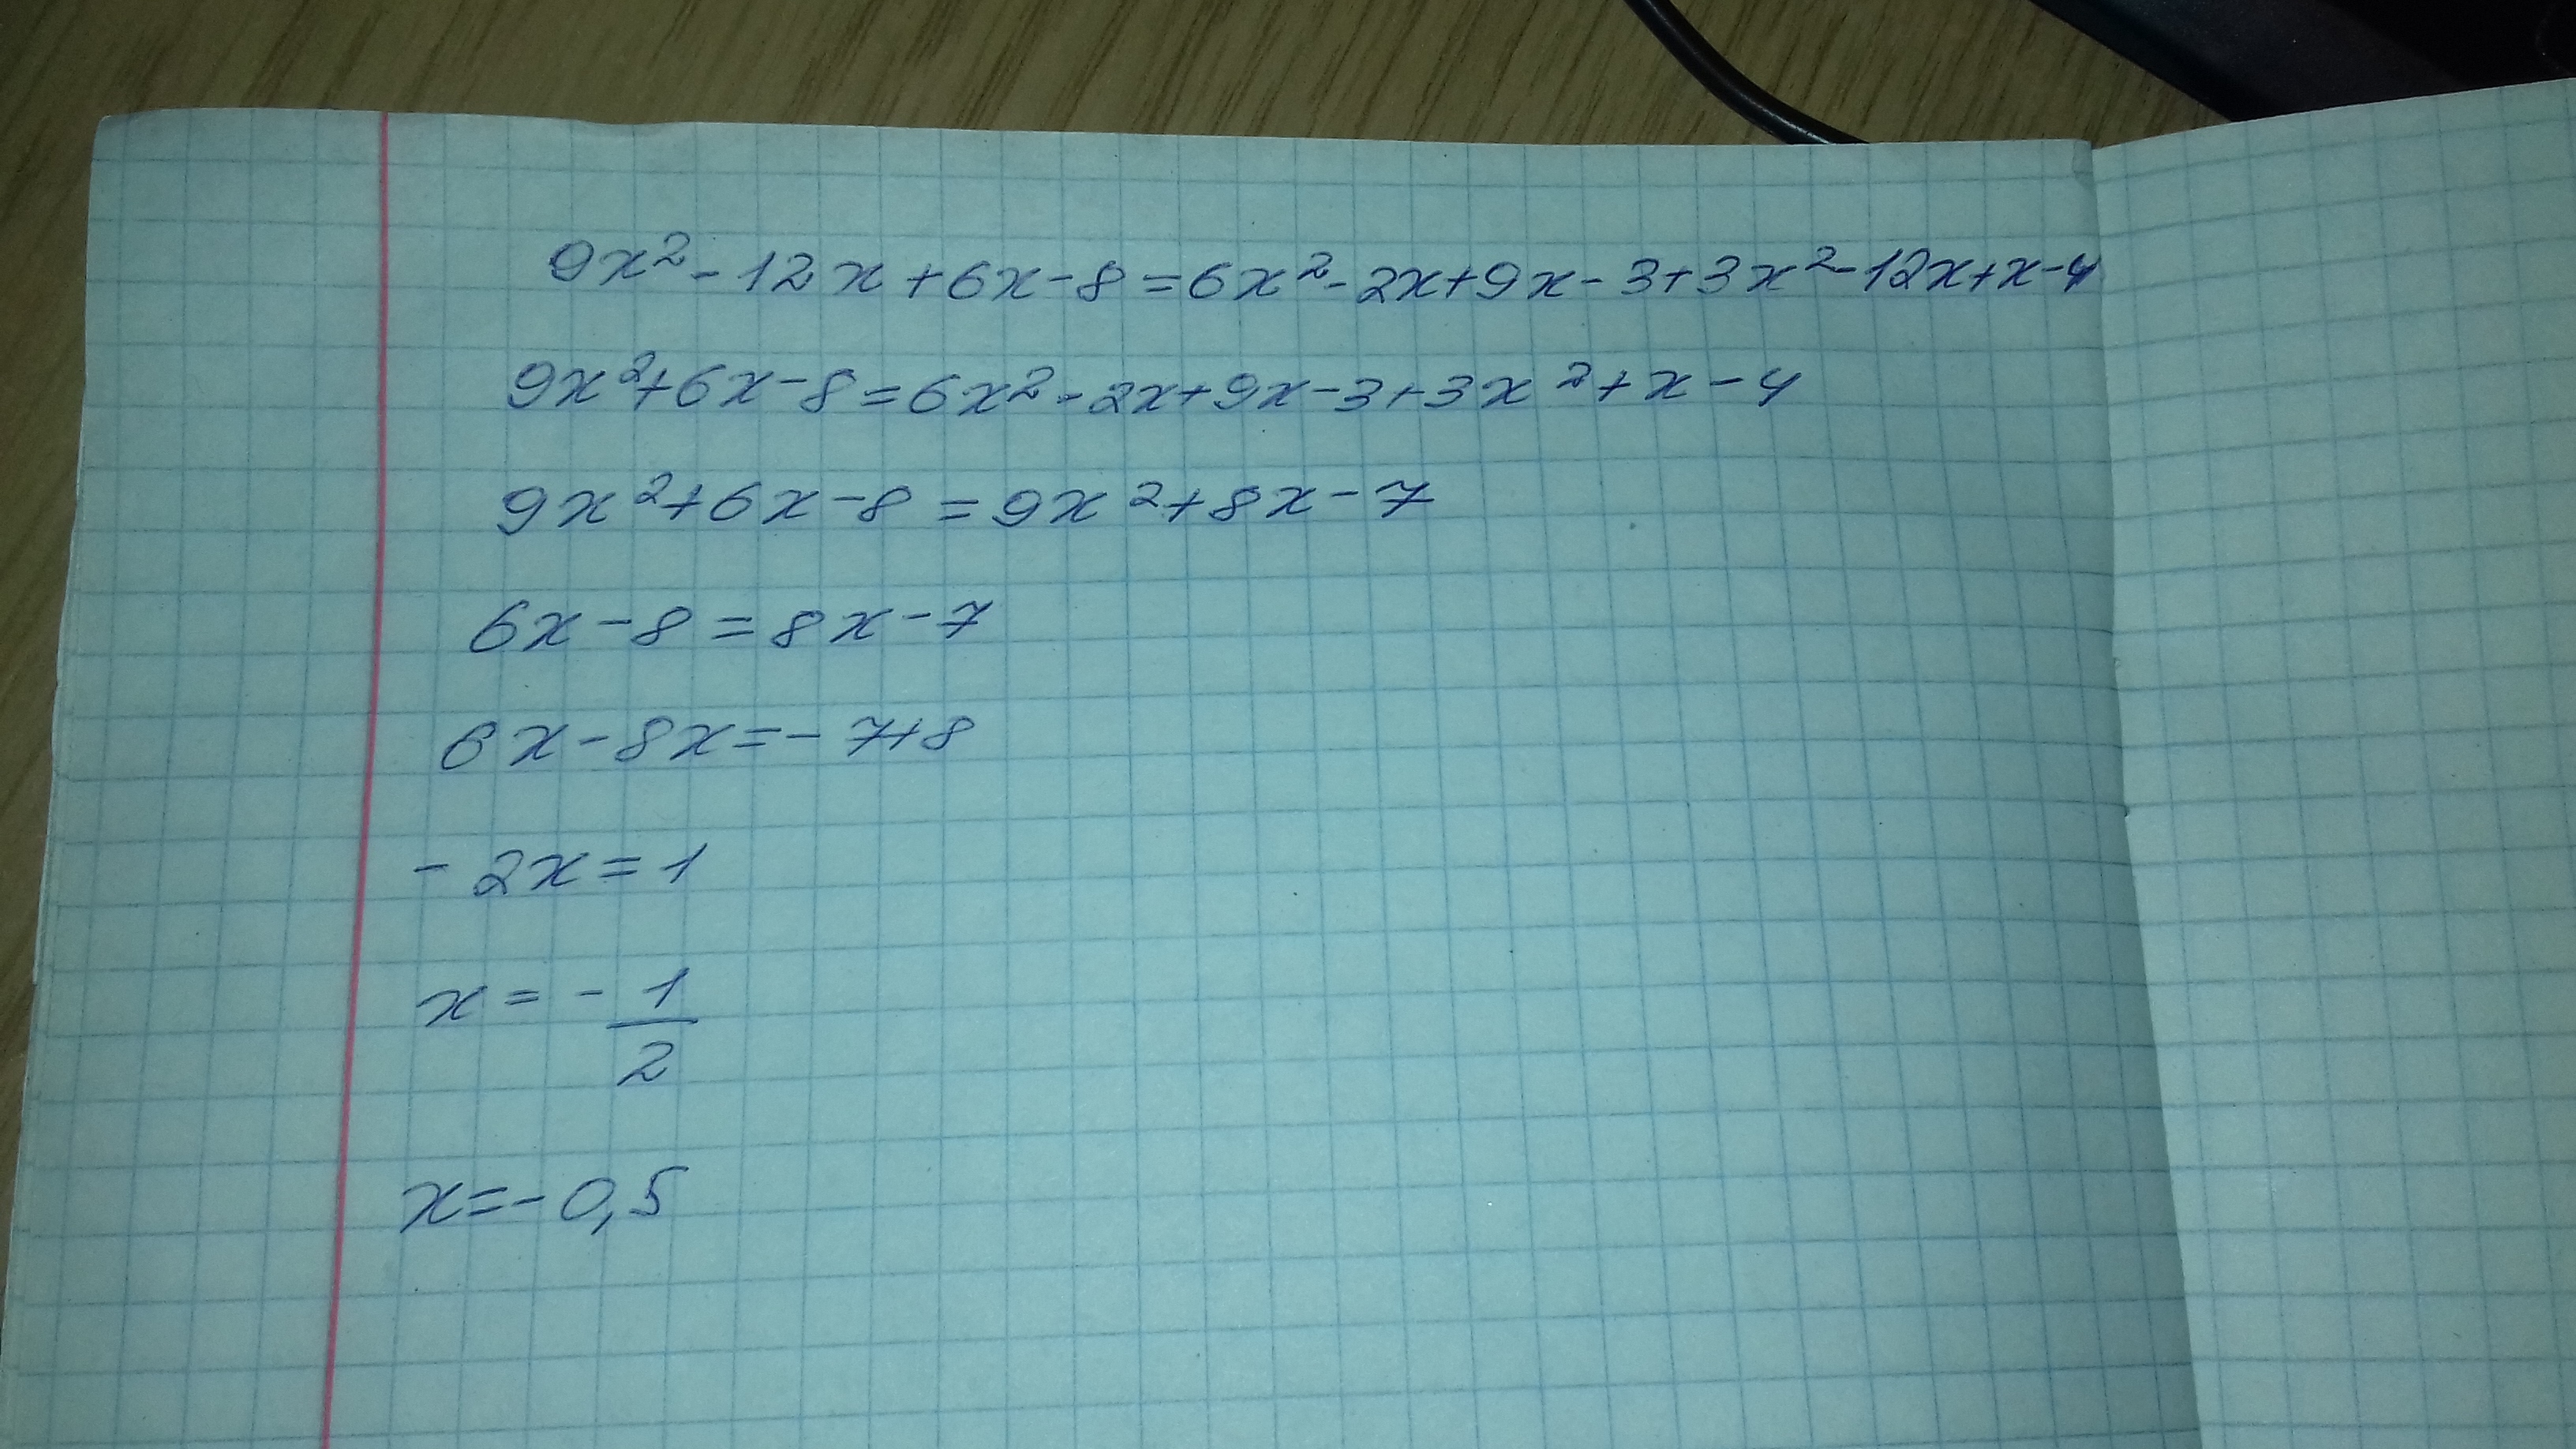 9x²-12x+6x-8=6x²-2x+9x-3+3x²-12x+x-4
9x²+6x-8=6x²-2x+9x-3+3x²+x-4
9x²+6x-8=9x²+8x-7
6x-8=8x-7
6x-8x=-7+8
-2x=1
x=-1/2
x=-0,5